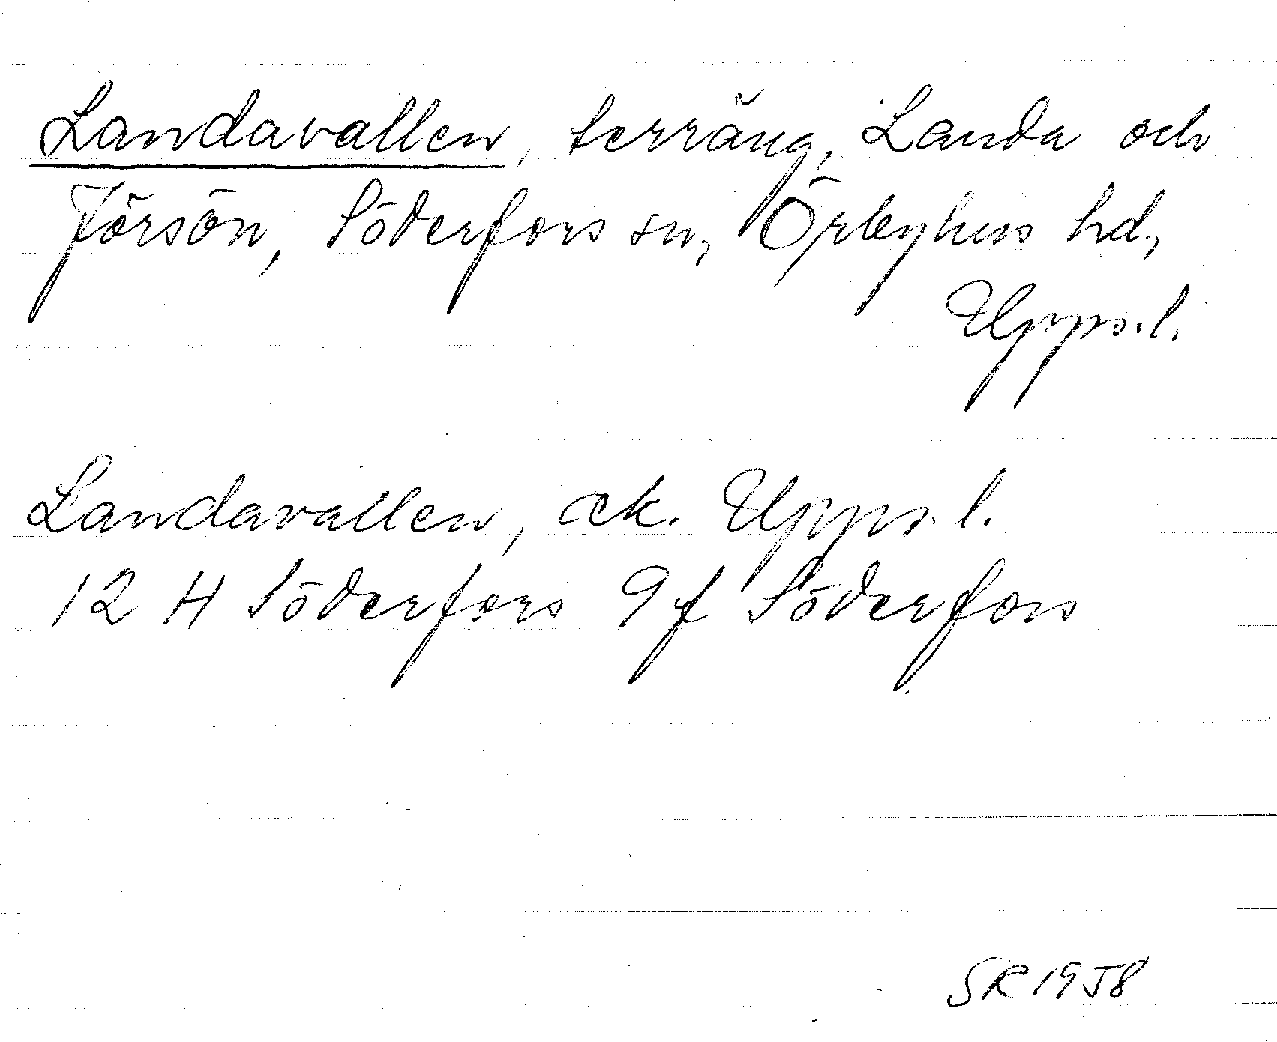 Landavallen, terräng, Landa och
Jörsön, Söderfors sn, Örbyhus hd,
Upps.l.
Landavallen, ek. Upps.l.
12 H Söderfors 9f Söderfors
SR 1958